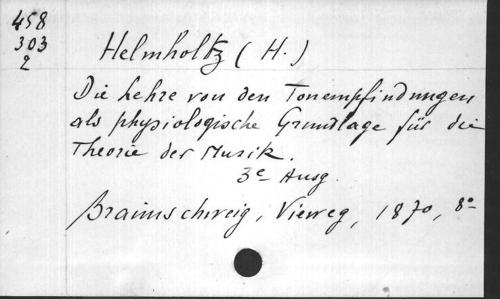 458
303
2
Helmholtz (H.)
Die Lehre von den Tonempfindungen
als physiologische Grundlage für die
Theorie der Musik.
3e Ausg.
Braunschweig, Vieweg, 1870, 8°